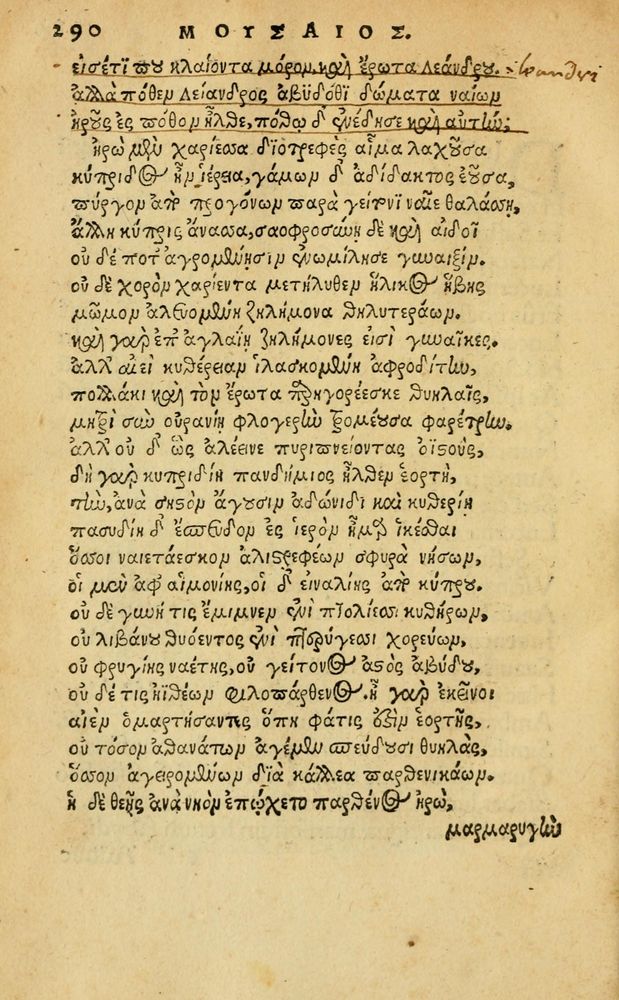 290 ΜΟΥΣΑΙΟΣ.
εἰσέτι που κλαίοντα μόρον καὶ ἔρωτα Λεάνδρου. Leandri
ἀλλὰ πόθεν Λείανδρος ἀβυδόθι δώματα ναίων
ἡροῦς ἐς πόθον ἦλθε, πόθῳ δ' ἐνέδησε καὶ αὐτὴν;
ἡρὼ μὲν χαρίεσσα διοτρεφὲς αἷμα λαχοῦσα
κύπριδος ἦν ἱέρεια, γάμων δ' ἀδίδακτος ἐοῦσα,
πύργον ἀπὸ προγόνων παρὰ γείτονι ναῖε θαλάσσῃ,
ἄλλη κύπρις ἄνασσα, σαοφροσύνῃ δὲ καὶ αἰδοῖ
οὐδέποτ' ἀγρομένῃσιν ἐνωμίλησε γυναιξίν.
οὐδὲ χορὸν χαρίεντα μετήλυθεν ἥλικος ἥβης
μῶμον ἀλευομένη ζηλήμονα θηλυτεράων.
καὶ γὰρ ἐπ' ἀγλαΐῃ ζηλήμονες εἰσὶ γυναῖκες.
ἀλλ' αἰεὶ κυθέρειαν ἱλασκομένη ἀφροδίτην,
πολλάκι καὶ τὸν ἔρωτα παρηγορέεσκε θυηλαῖς,
μητρὶ σὺν οὐρανίῃ φλογερὴν τρομέουσα φαρέτρην.
ἀλλ' οὐδ' ὣς ἀλέεινε πυριπνείοντας ὀϊστούς,
δὴ γὰρ κυπριδίη πανδήμιος ἦλθεν ἑορτὴ,
τὴν, ἀνὰ σηστὸν ἄγουσιν ἀδώνιδι καὶ κυθερείῃ
πασυδίῃ δ' ἔσπευδον ἐς ἱερὸν ἦμαρ ἱκέσθαι
ὅσσοι ναιετάεσκον ἁλιστρεφέων σφυρὰ νήσων,
οἱ μὲν ἀφ' αἱμονίης, οἱ δ' εἰναλίης ἀπὸ κύπρου.
οὐδὲ γυνή τις ἔμιμνεν ἐνὶ πτολίεσσι κυθήρων,
οὐ λιβάνου θυόεντος ἐνὶ πτερύγεσσι χορεύων,
οὐ φρυγίης ναέτης, οὐ γείτονος ἀστὸς ἀβύδου,
οὐδέ τις ἠϊθέων φιλοπάρθενος. ἦ γὰρ ἐκεῖνοι
αἰὲν ὁμαρτήσαντες ὅπῃ φάτις ἐστὶν ἑορτῆς,
οὐ τόσον ἀθανάτων ἀγέμεν σπεύδουσι θυηλὰς,
ὅσσον ἀγειρομένων διὰ κάλλεα παρθενικάων.
ἡ δὲ θεῆς ἀνὰ νηὸν ἐπῴχετο παρθένος ἡρὼ,
μαρμαρυγὴν